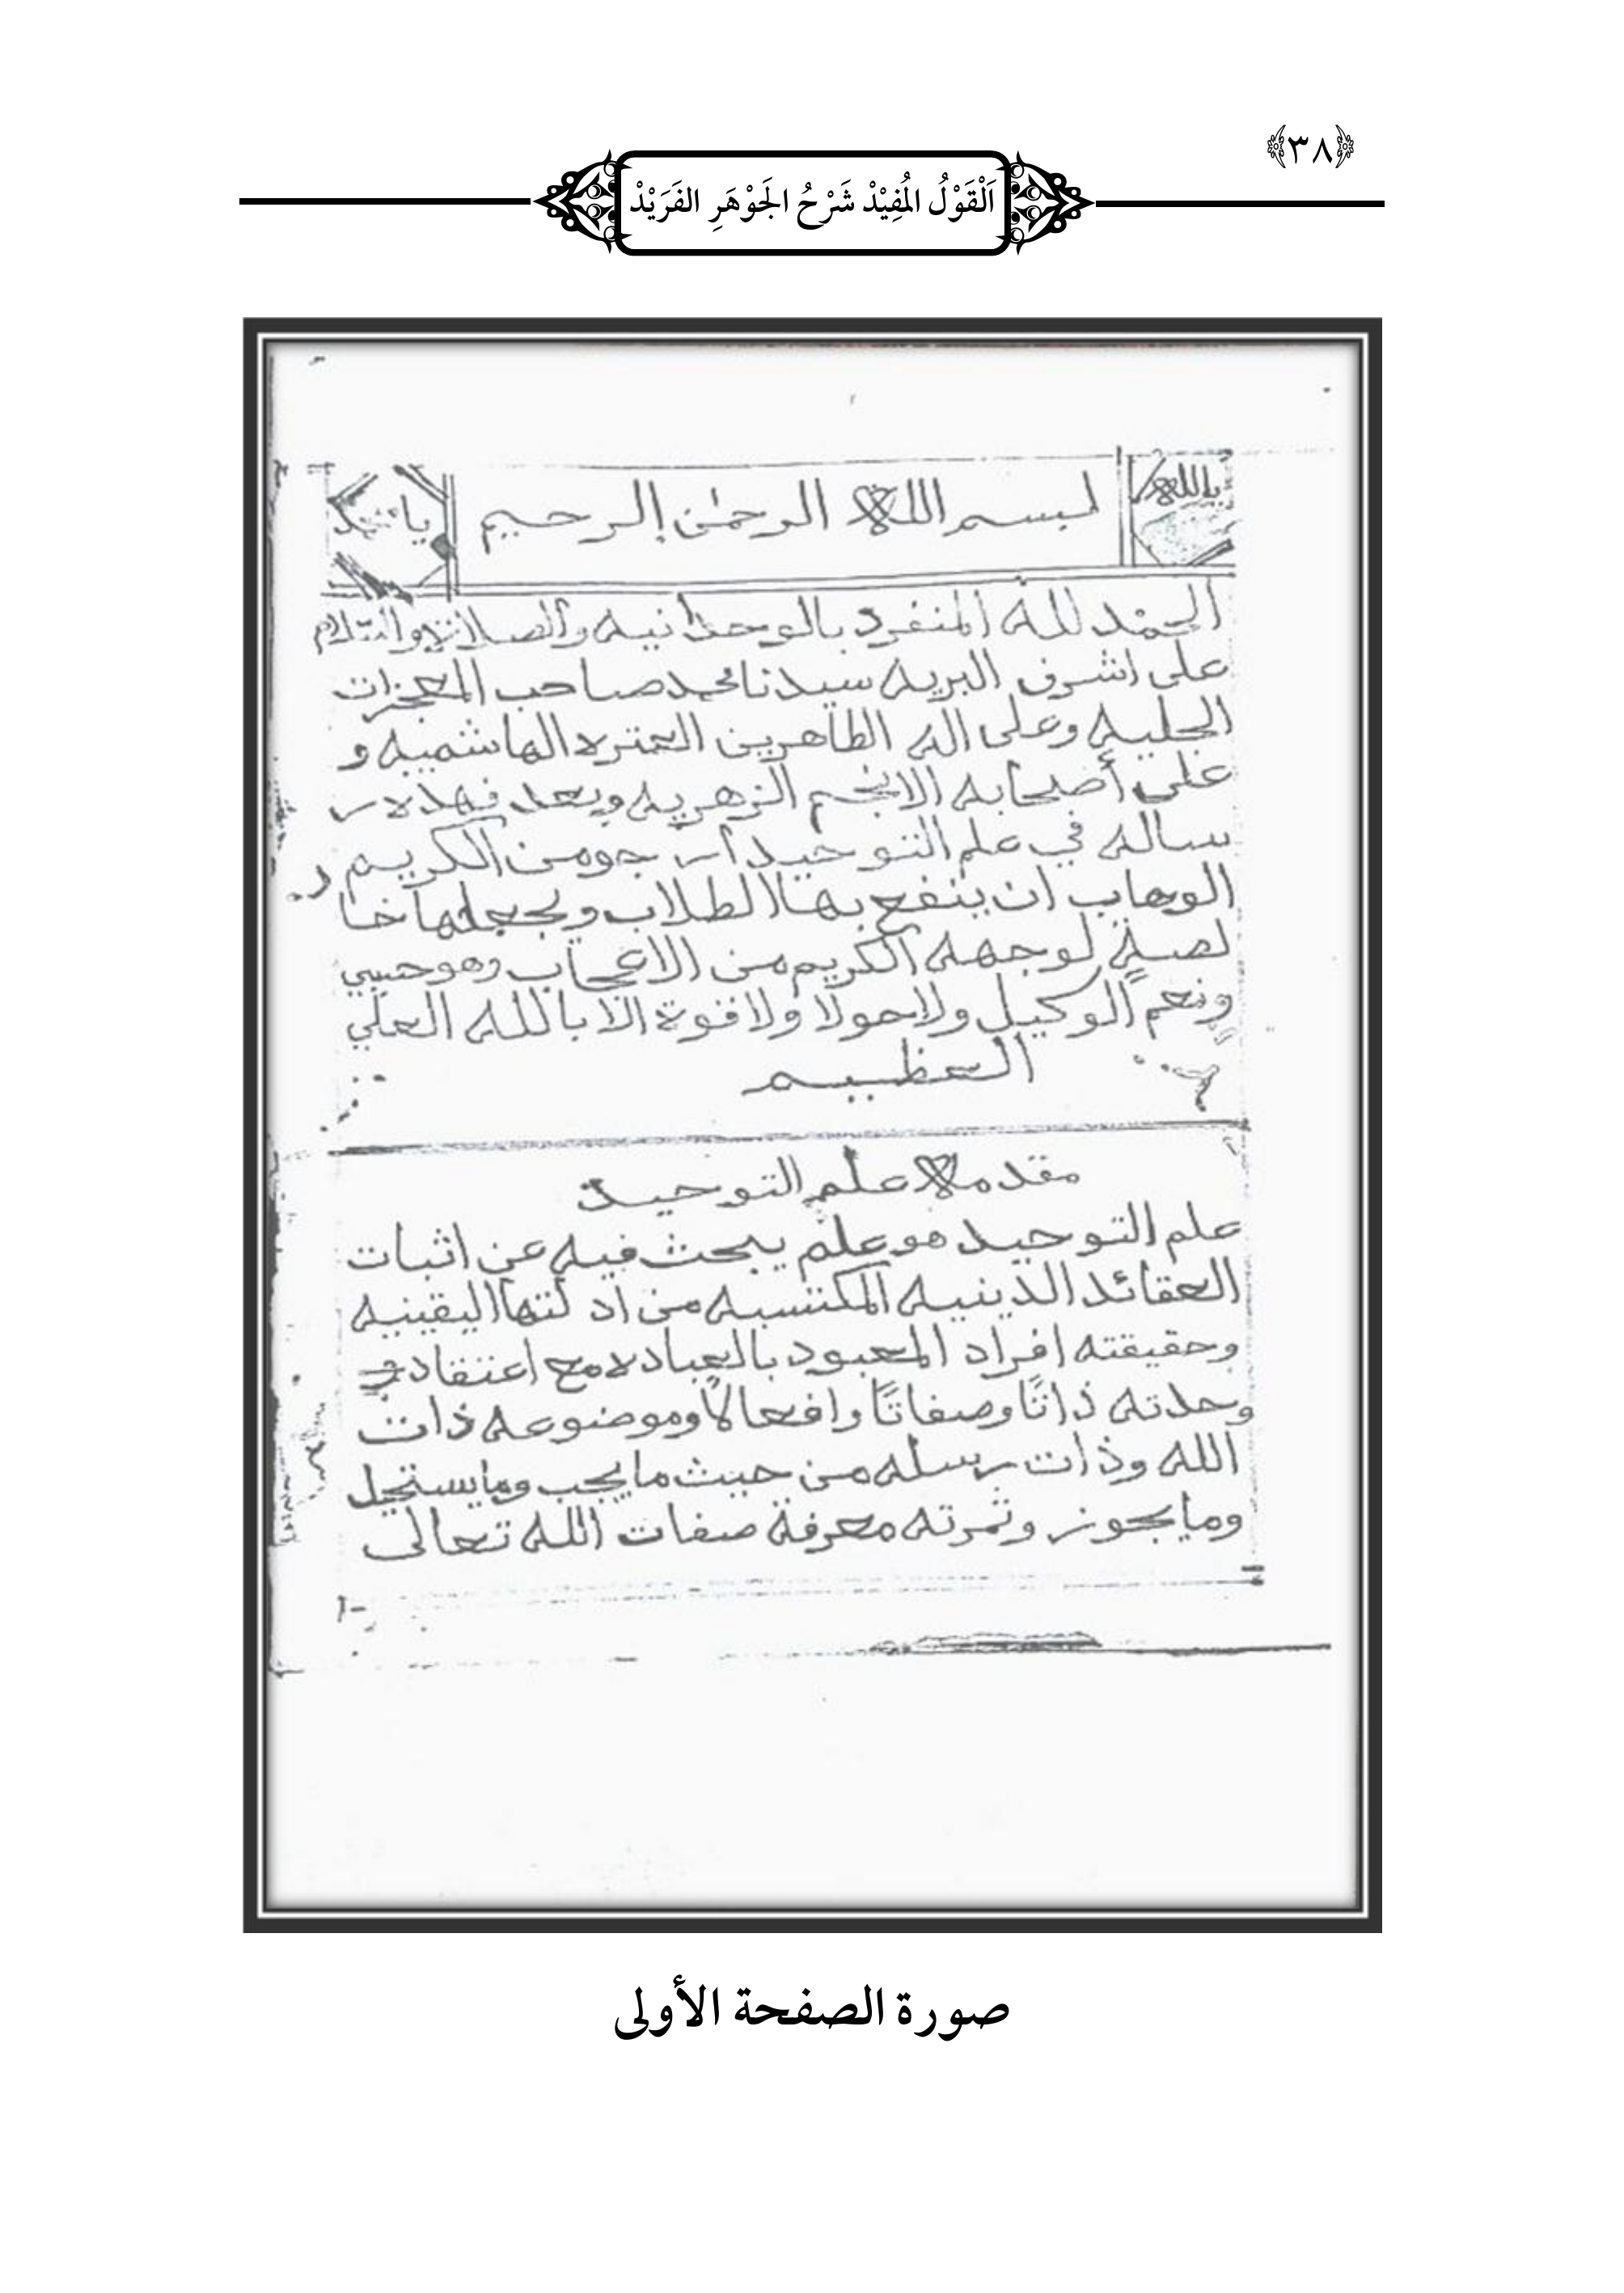 ﴿٣٨﴾
اَلْقَوْلُ المُفِيْدْ شَرْحُ الجَوْهَرِ الفَرَيْدْ
ياالله
بسم الله الرحمٰن الرحيم
يا
الحمد لله المنفرد بالوحدانيه والصلاة والسلام
على اشرف البريه سيدنا محمد صاحب المعجزات
الجليه وعلى اله الطاهرين العتره الهاشميه و
على أصحابه الانجم الزهريه وبعد فهذه ر
ساله في علم التوحيد أرجو من الكريم
الوهاب ان ينفع بها الطلاب ويجعلها خا
لصةً لوجهه الكريم من الاعجاب وهو حسبي
ونعم الوكيل ولا حولا ولا قوة الا بالله العلي
العظيم
مقدمه علم التوحيد
علم التوحيد هو علم يبحث فيه عن اثبات
العقائد الدينيه المكتسبه من ادلتها اليقينيه
وحقيقته افراد المعبود بالعباده مع اعتقاد
وحدته ذاتًا وصفاتًا وافعالاً وموضوعه ذات
الله وذات رسله من حيث ما يجب وما يستحيل
وما يجوز وثمرته معرفة صفات الله تعالى
صورة الصفحة الأولى